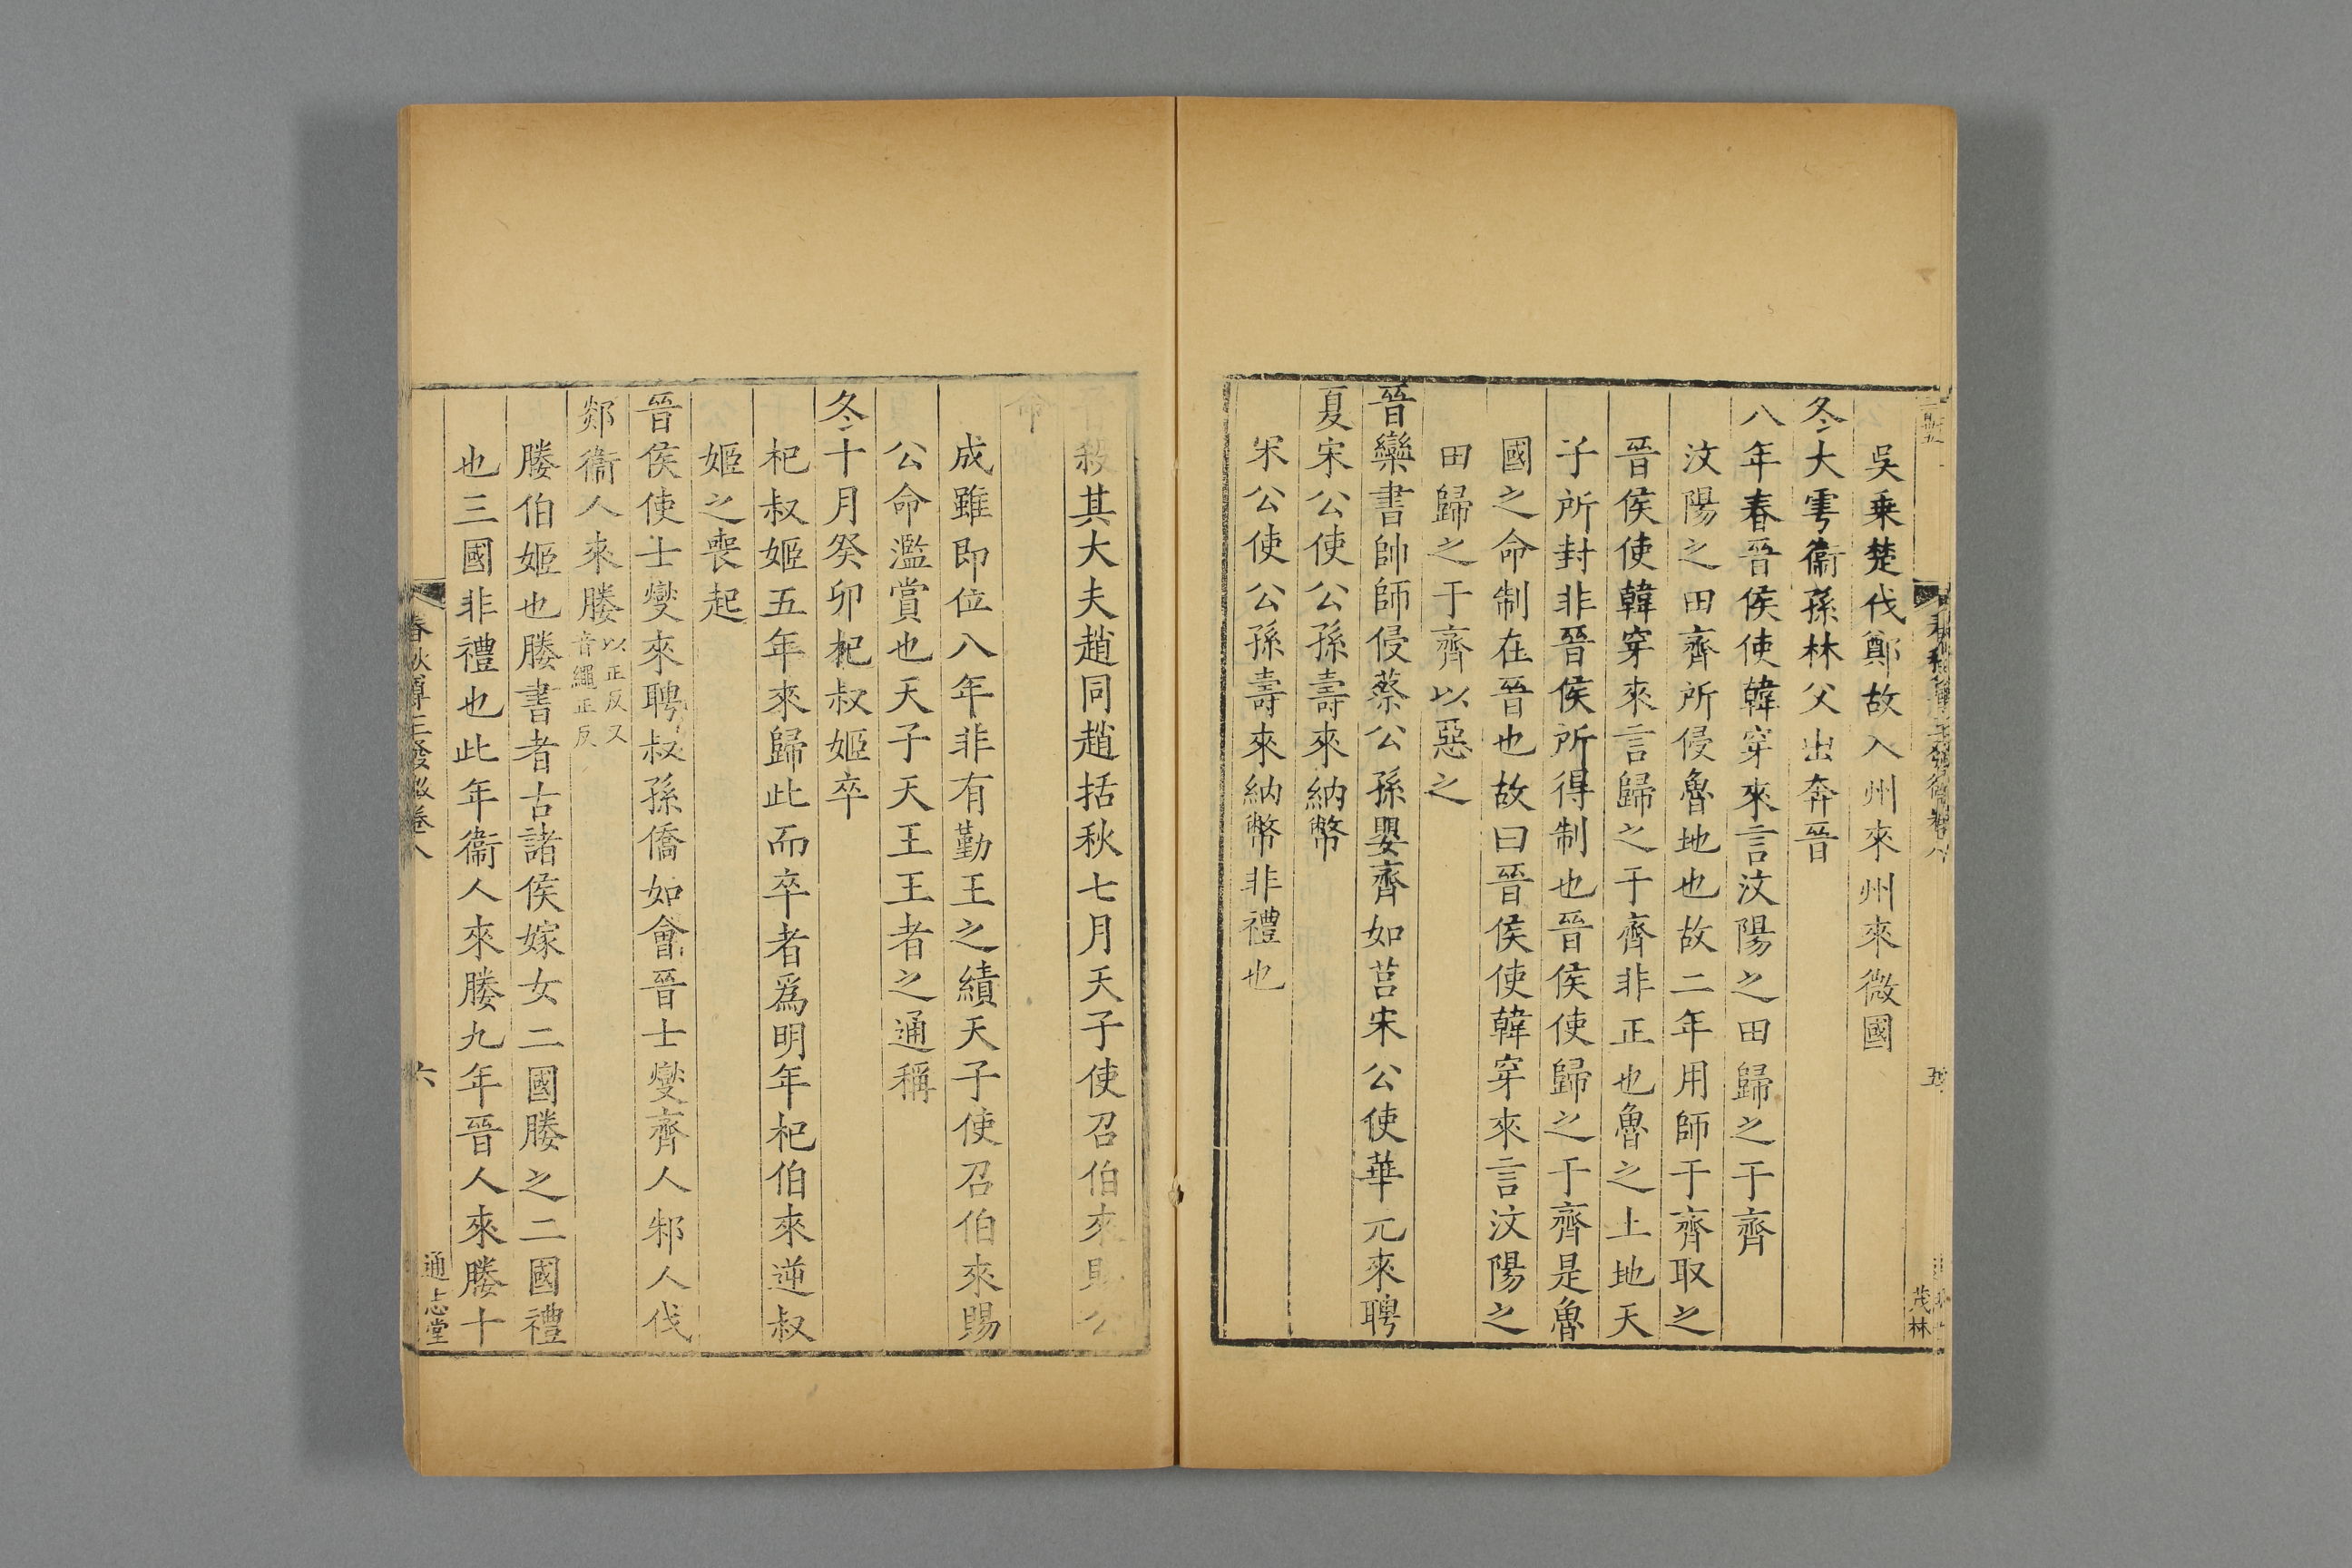 吳乗楚伐鄭故入州來州來微國
冬大雩衞孫林父出奔晉
八年春晉侯使韓穿來言汶陽之田歸之于齊
汶陽之田齊所侵魯地也故二年用師于齊取之
晉侯使韓穿來言歸之于齊非正也魯之土地天
子所封非晉侯所得制也晉侯使歸之于齊是魯
國之命制在晉也故曰晉侯使韓穿來言汶陽之
田歸之于齊以惡之
晉欒書帥師侵蔡公孫嬰齊如莒宋公使華元來聘
夏宋公使公孫壽來納幣
宋公使公孫壽來納幣非禮也
五
茂林
殺其大夫趙同趙括秋七月天子使召伯來賜公
命
成雖即位八年非有勤王之績天子使召伯來賜
公命濫賞也天子天王王者之通稱
冬十月癸卯杞叔姬卒
杞叔姬五年來歸此而卒者爲明年杞伯來逆叔
姬之喪起
晉侯使士燮來聘叔孫僑如會晉士燮齊人邾人伐
郯衞人來媵以正反又音繩正反
媵伯姬也媵書者古諸侯嫁女二國媵之二國禮
也三國非禮也此年衞人來媵九年晉人來媵十
春秋尊王發微卷八
六
通志堂